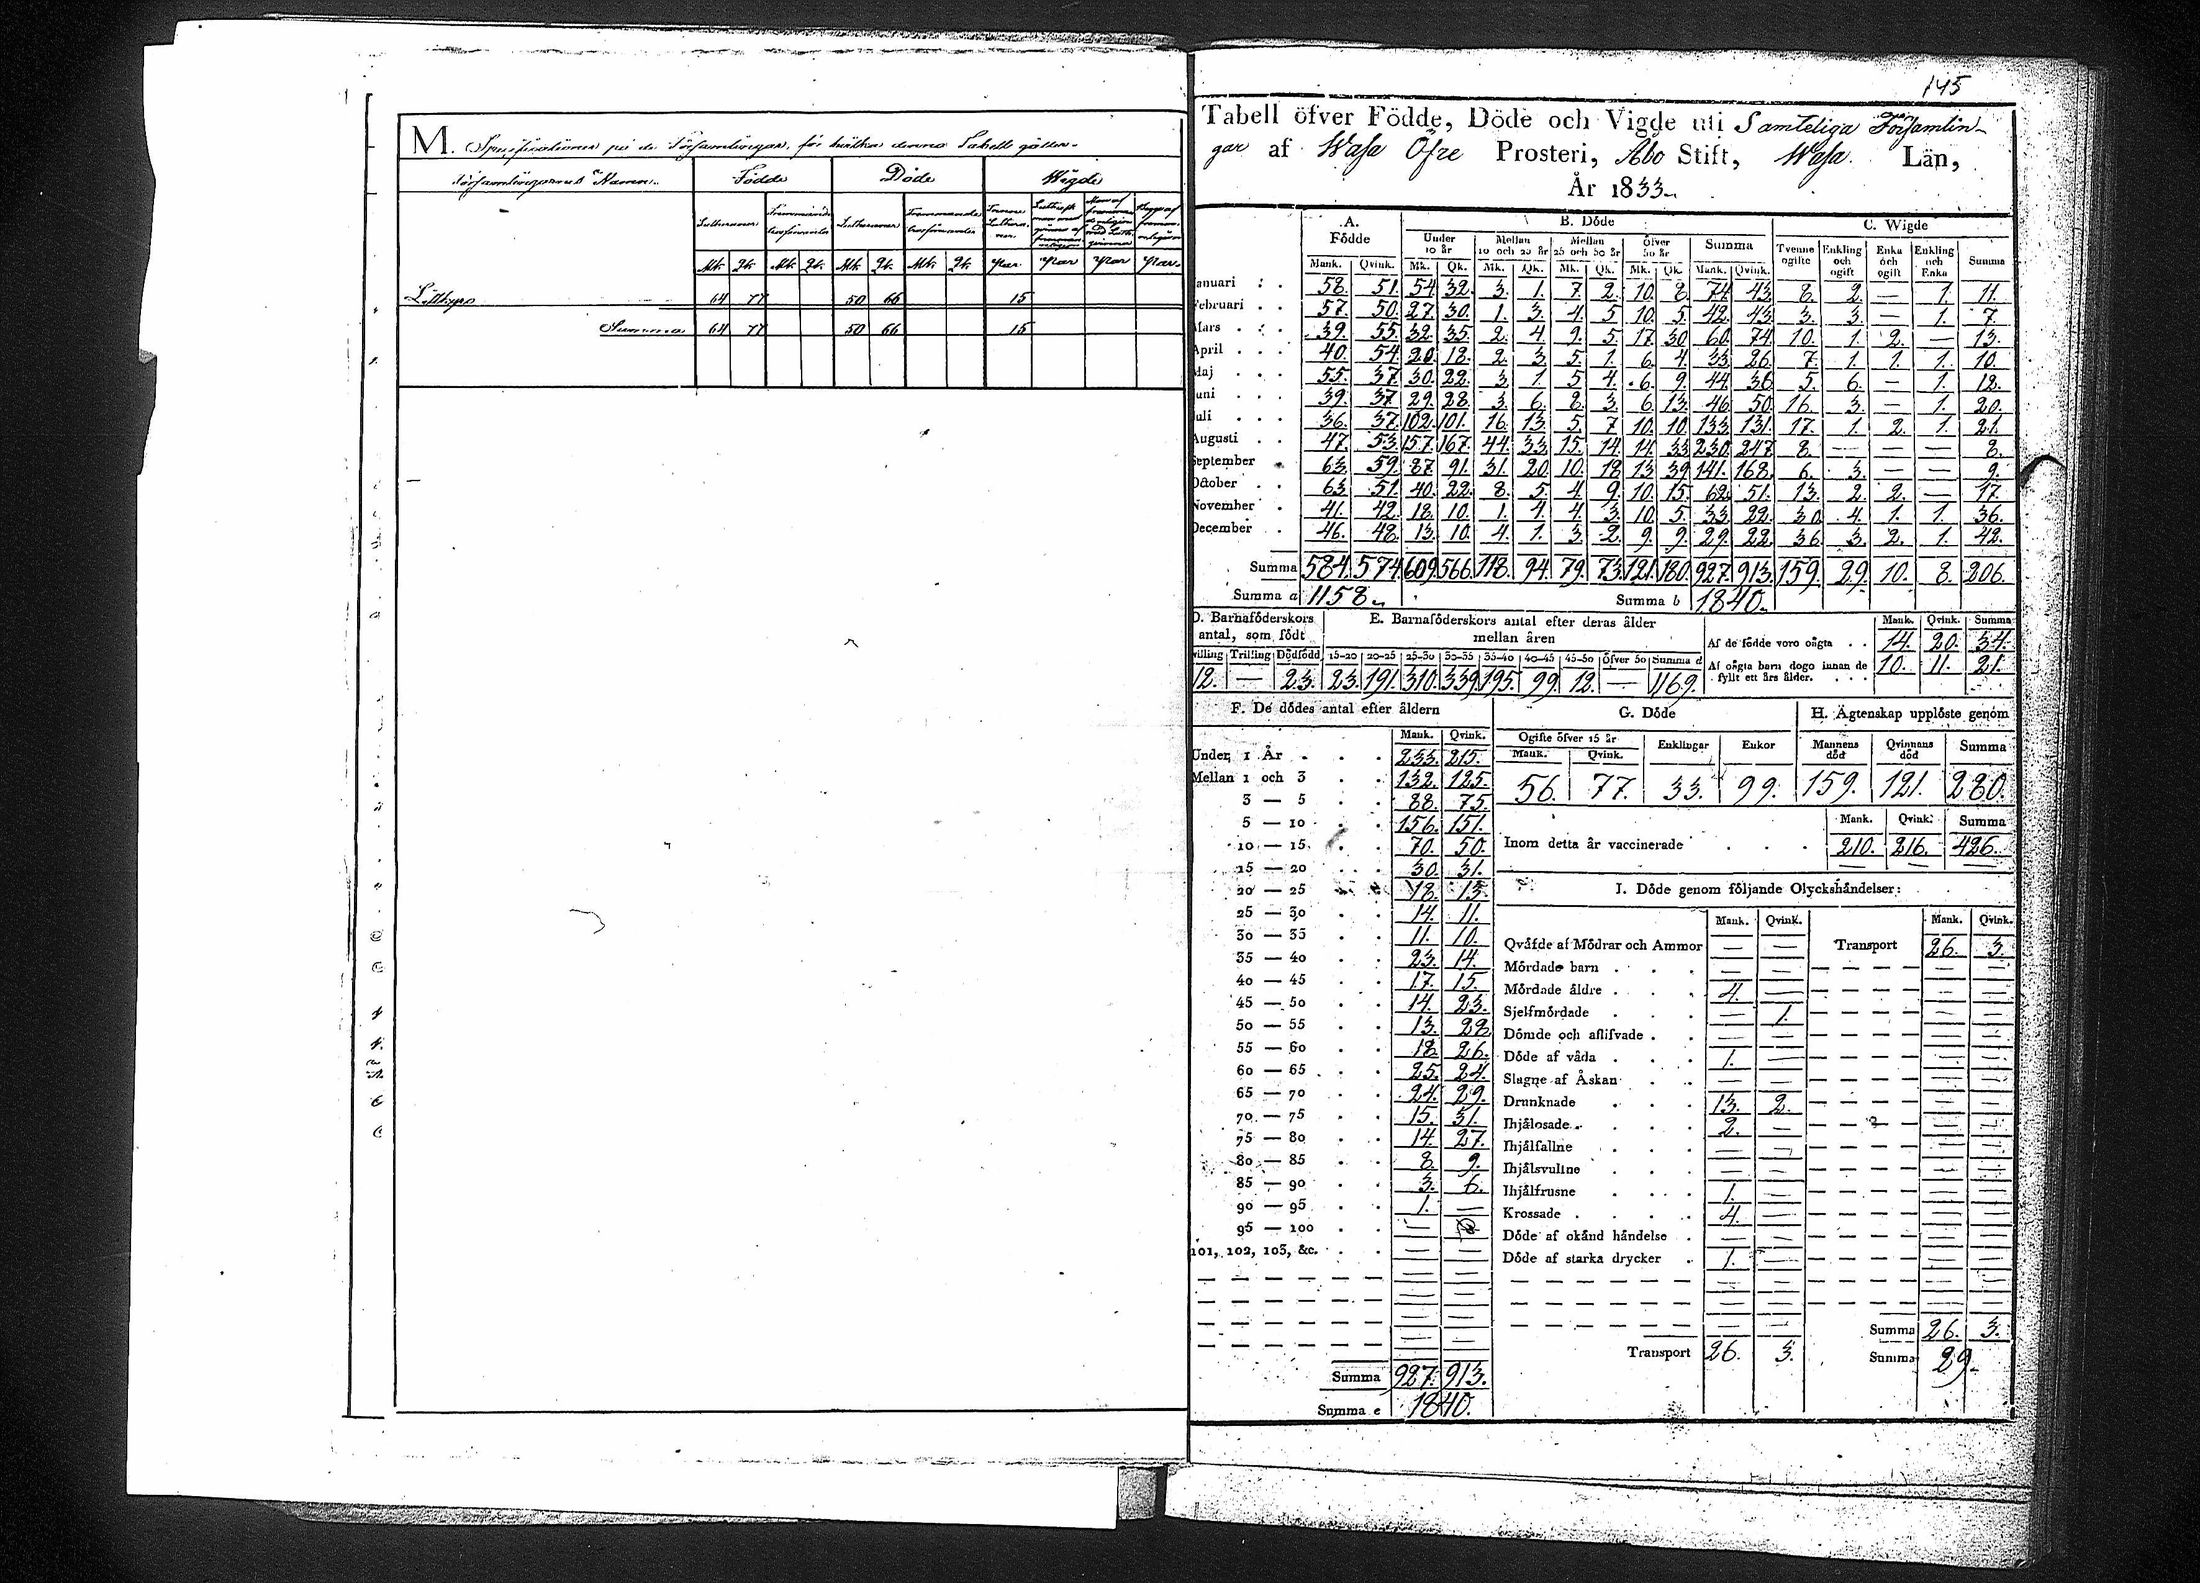 M. Specificationer på de Församlingar, för hvilka denna Tabell gäller.
Församlingarnas Namn. Födde Döde Wigde
Lutheraner Främmande trosförvandter Lutheraner Främmande trosförvandter
Mk. Qk. Mk. Qk. Mk. Qk. Mk. Qk. Par Par Par Par
Lillkyro 64 77 50 66 15
Summa 64 77 50 66 15
145
Tabell öfver Födde, Döde och Vigde uti Samteliga Församlin-
gar af Wasa Öfre Prosteri, Åbo Stift, Wasa Län,
År 1833.
A. Födde B. Döde C. Wigde
Under 10 år Mellan 10 och 25 år Mellan 25 och 50 år Öfver 50 år Summa Tvenne ogifte Enkling och ogift Enka och ogift Enkling och Enka Summa
Mank. Qvink. Mk. Qk. Mk. Qk. Mk. Qk. Mk. Qk. Mank. Qvink.
Januari 58. 51. 54. 32. 3. 1. 7. 2. 10. 8. 74. 43. 8. 2. — 1. 11.
Februari 57. 50. 27. 30. 1. 3. 4. 5. 10. 5. 42. 43. 3. 3. — 1. 7.
Mars 39. 55. 32. 35. 2. 4. 9. 5. 17. 30. 60. 74. 10. 1. 2. — 13.
April 40. 54. 20. 18. 2. 3. 5. 1. 6. 4. 33. 26. 7. 1. 1. 1. 10.
Maj 55. 37. 30. 22. 3. 1. 5. 4. 6. 9. 44. 36. 5. 6. — 1. 12.
Juni 39. 37. 29. 28. 3. 6. 8. 3. 6. 13. 46. 50. 16. 3. — 1. 20.
Juli 36. 37. 102. 101. 16. 13. 5. 7. 10. 10. 133. 131. 17. 1. 2. 1. 21.
Augusti 47. 53. 157. 167. 44. 33. 15. 14. 14. 33. 230. 247. 8. — — — 8.
September 63. 59. 87. 91. 31. 20. 10. 18. 13. 39. 141. 168. 6. 3. — — 9.
October 63. 51. 40. 22. 8. 5. 4. 9. 10. 15. 62. 51. 13. 2. 2. — 17.
November 41. 42. 18. 10. 1. 4. 4. 3. 10. 5. 33. 22. 30. 4. 1. 1. 36.
December 46. 48. 13. 10. 4. 1. 3. 2. 9. 9. 29. 22. 36. 3. 2. 1. 42.
Summa 584. 574. 609. 566. 118. 94. 79. 73. 121. 180. 927. 913. 159. 29. 10. 8. 206.
Summa a 1158. Summa b 1840.
D. Barnaföderskors antal, som födt
E. Barnaföderskors antal efter deras ålder mellan åren
Mank. Qvink. Summa
Af de födde voro oägta 14. 20. 34.
Tvilling Trilling Dödfödd 15-20 20-25 25-30 30-35 35-40 40-45 45-50 Öfver 50 Summa d
12. — 23. 23. 191. 310. 339. 195. 99. 12. — 1169.
Af oägta barn dogo innan de fyllt ett års ålder. 10. 11. 21.
F. De dödes antal efter åldern
Mank. Qvink.
Under 1 År 233. 215.
Mellan 1 och 3 132. 125.
3 — 5 88. 75.
5 — 10 156. 151.
10 — 15 70. 50.
15 — 20 30. 31.
20 — 25 18. 13.
25 — 30 14. 11.
30 — 35 11. 10.
35 — 40 23. 14.
40 — 45 17. 15.
45 — 50 14. 23.
50 — 55 13. 28.
55 — 60 18. 26.
60 — 65 25. 24.
65 — 70 24. 29.
70 — 75 15. 31.
75 — 80 14. 27.
80 — 85 8. 9.
85 — 90 3. 6.
90 — 95 1. —
95 — 100 —
101, 102, 103, &c. — —
Summa 927. 913.
Summa e 1840.
G. Döde
Ogifte öfver 15 år Enklingar Enkor
Mank. Qvink.
56. 77. 33. 99.
H. Ägtenskap upplöste genom
Mannens död Qvinnans död Summa
159. 121. 280.
Mank. Qvink. Summa
Inom detta år vaccinerade 210. 216. 426.
I. Döde genom följande Olyckshändelser:
Mank. Qvink. Mank. Qvink.
Qväfde af Mödrar och Ammor — — Transport 26. 3.
Mördade barn — —
Mördade äldre 4. —
Sjelfmördade — 1.
Dömde och aflifvade — —
Döde af våda 1. —
Slagne af Åskan — —
Drunknade 13. 2.
Ihjälosade 2. —
Ihjälfallne — —
Ihjälsvultne — —
Ihjälfrusne 1. —
Krossade 4. —
Döde af okänd händelse — —
Döde af starka drycker 1. —
Summa 26. 3.
Transport 26. 3. Summa 29.